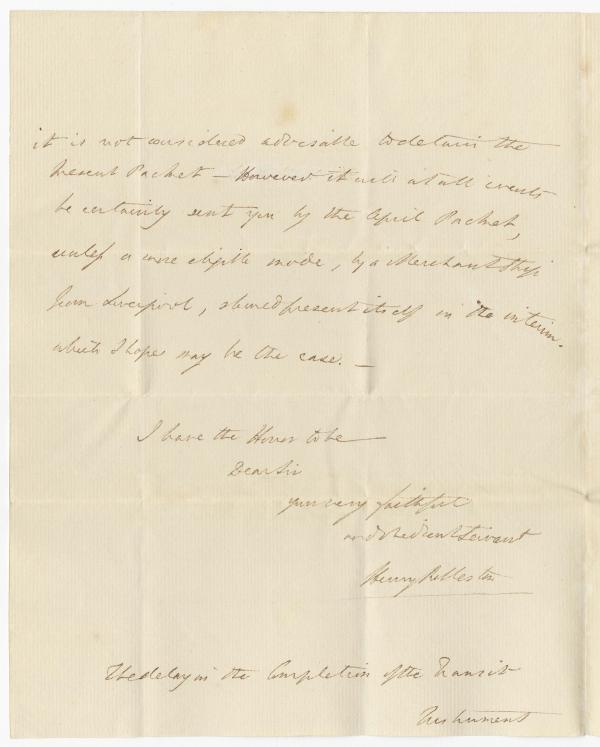 it is not considered advisable to detain the
present Packet — However it will at all events
be certainly sent you by the April Packet,
unless a more eligible mode, by a Merchant Ship
from Liverpool, should present itself in the interim.
which I hope may be the case. —
I have the Honor to be
Dear Sir
your very faithful
and obedient Servant
Henry Rolleston
The delay in the Completion of the Transit
Instrument